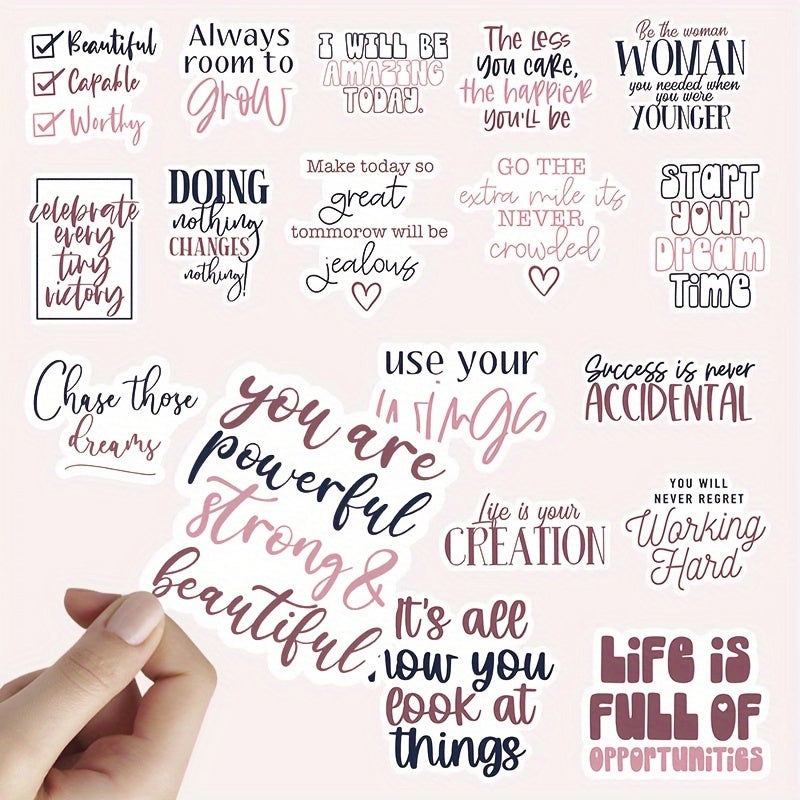 Beautiful
Capable
Worthy
Always
room to
grow
I WILL BE
AMAZING
TODAY.
The less
you care,
the happier
you'll be
Be the woman
WOMAN
you needed when
you were
YOUNGER
celebrate
every
tiny
victory
DOING
nothing
CHANGES
nothing!
Make today so
great
tommorow will be
jealous
GO THE
extra mile its
NEVER
crowded
START
your
Dream
Time
Chase those
dreams
you are
powerful
strong &
beautiful
use your
wings
Success is never
ACCIDENTAL
Life is your
CREATION
YOU WILL
NEVER REGRET
Working
Hard
It's all
how you
look at
things
LIFE IS
FULL OF
OPPORTUNITIES